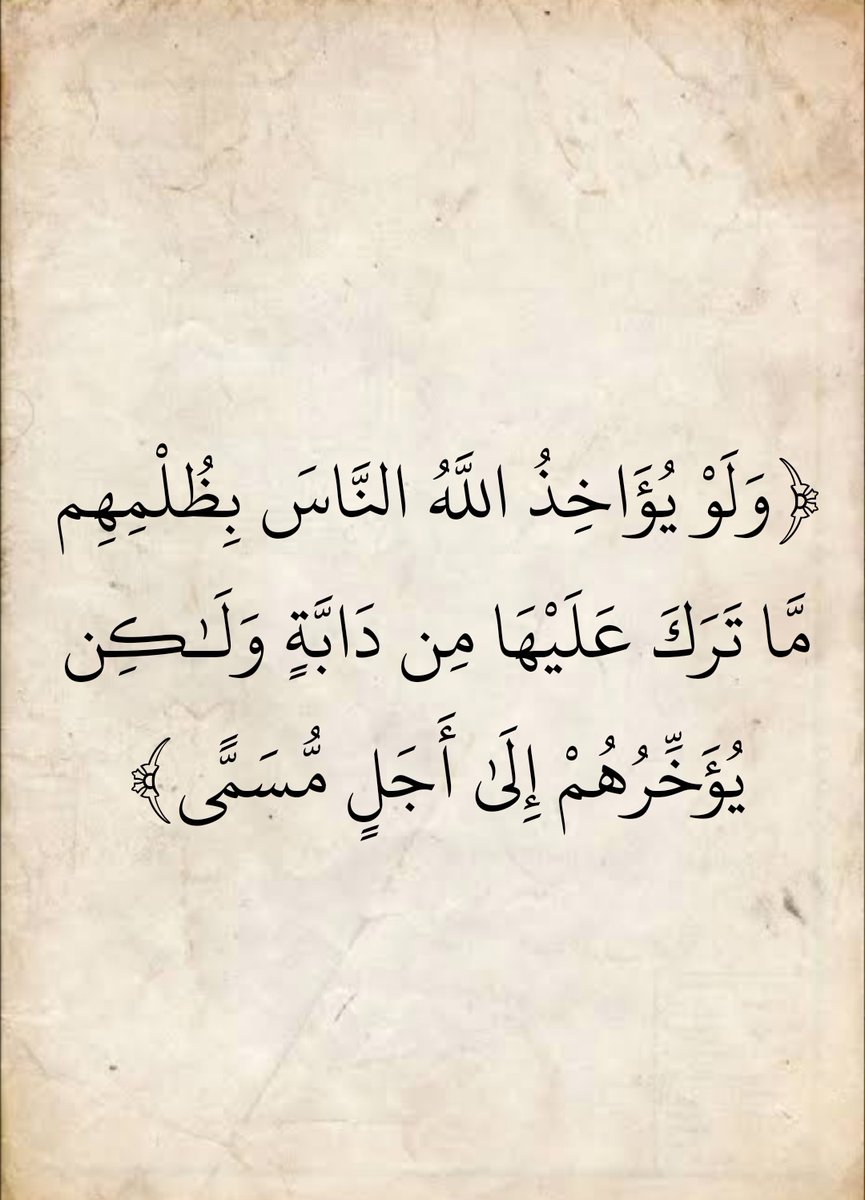 ﴿وَلَوْ يُؤَاخِذُ اللَّهُ النَّاسَ بِظُلْمِهِم
مَّا تَرَكَ عَلَيْهَا مِن دَابَّةٍ وَلَـٰكِن
يُؤَخِّرُهُمْ إِلَىٰ أَجَلٍ مُّسَمًّى﴾